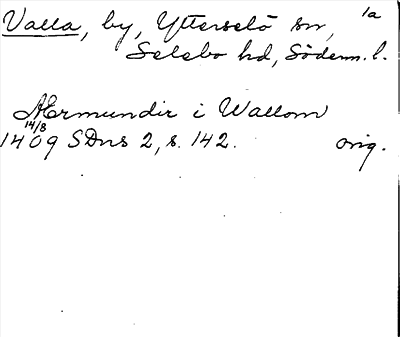 Valla, by, Ytterselö sn, 1a
Selebo hd, Söderm. l.
Ærmundir i Wallom
14/8
1409 SDns 2, s. 142. orig.